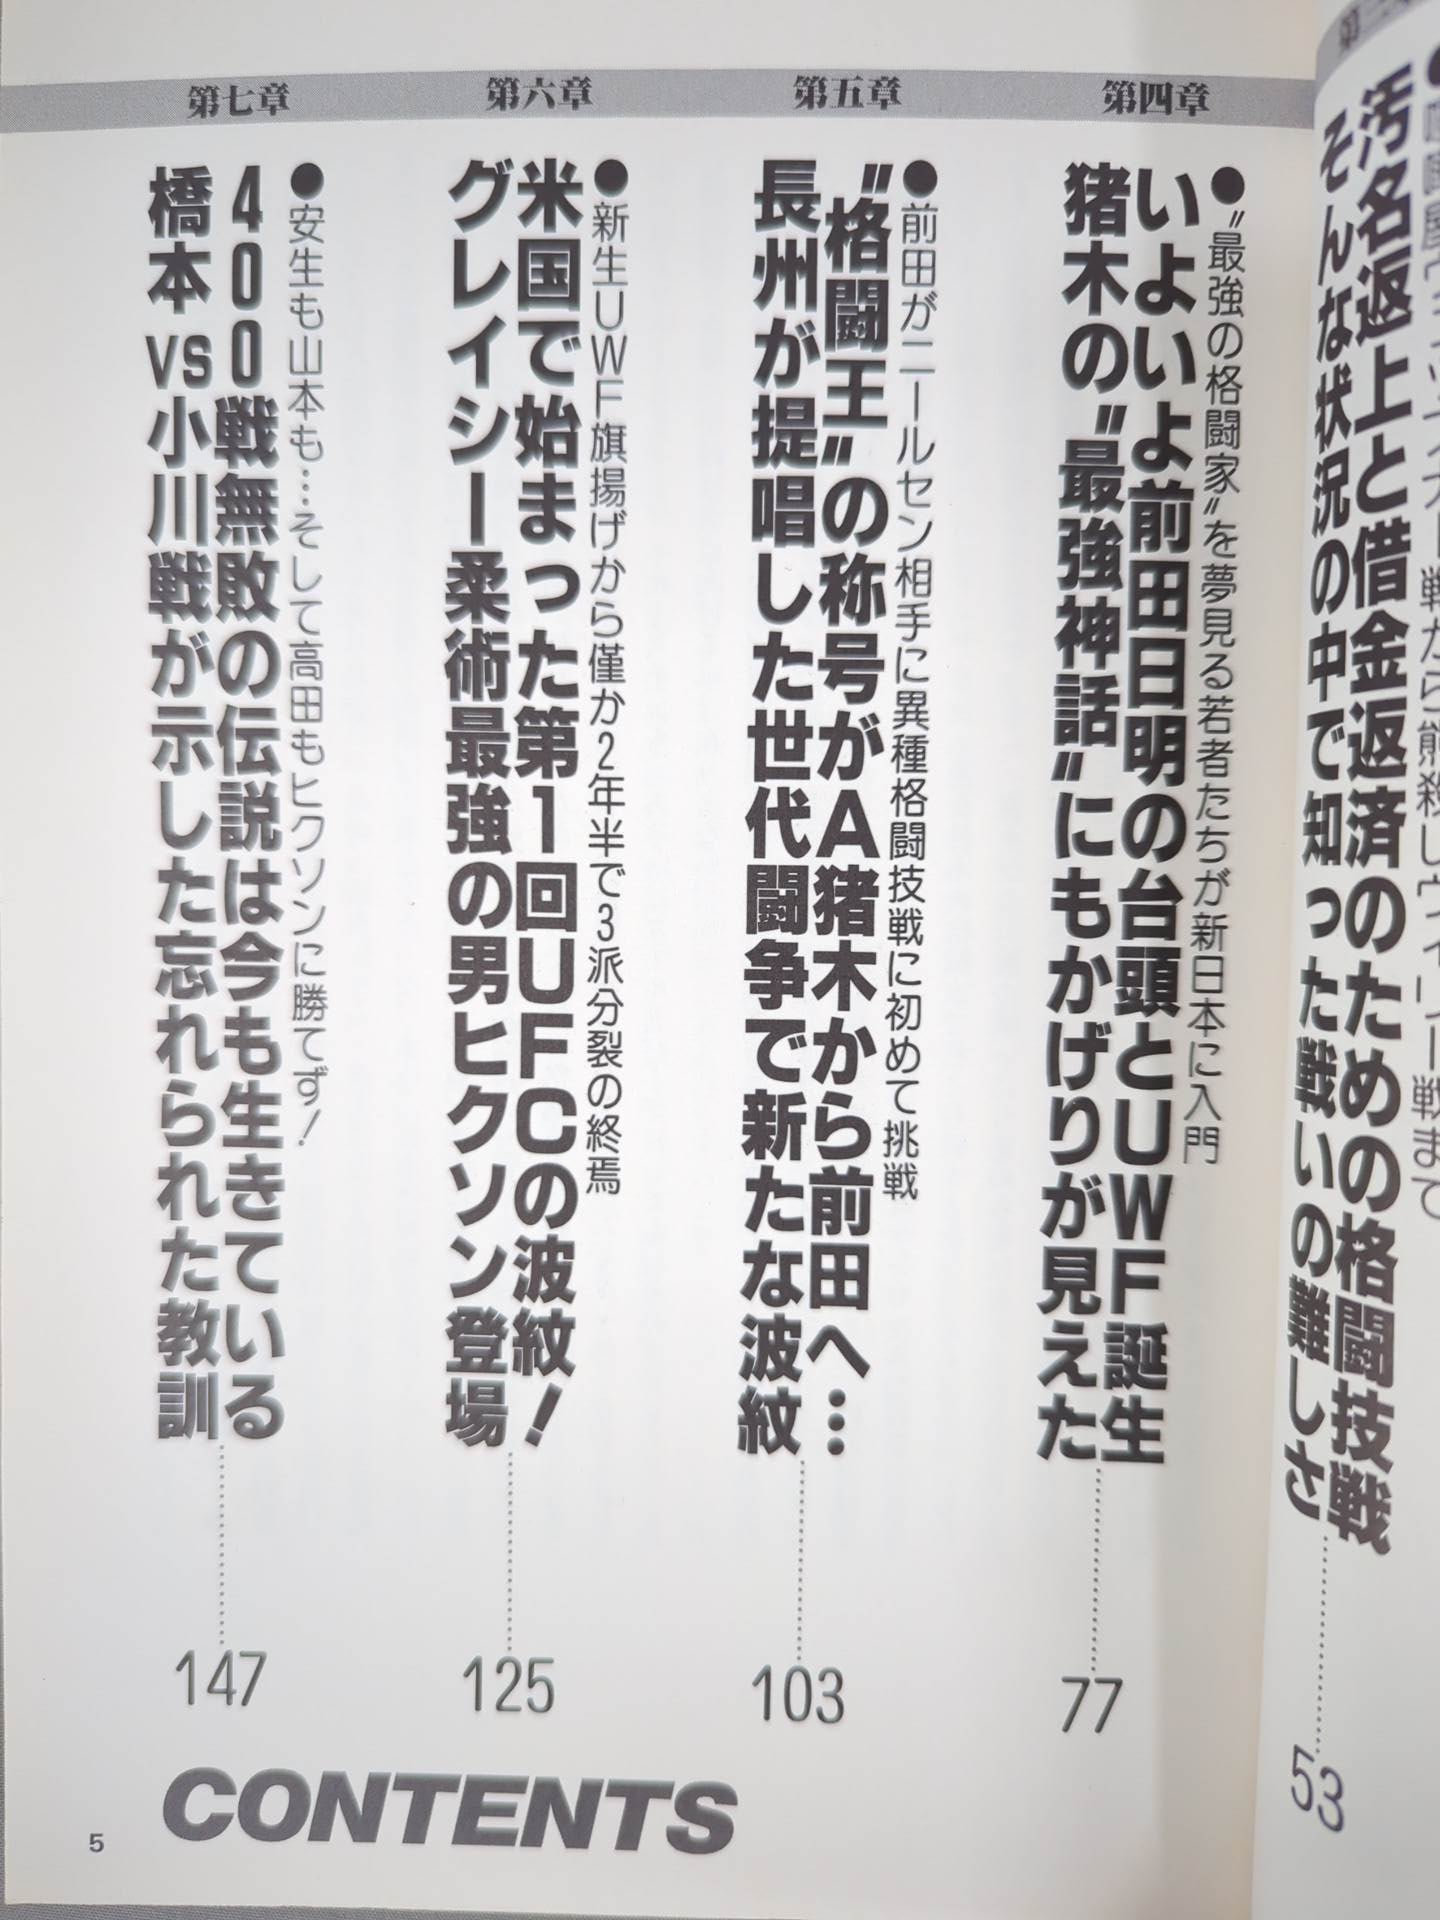 汚名返上と借金返済のための格闘技戦
そんな状況の中で知った戦いの難しさ
53
第四章
●〝最強の格闘家〟を夢見る若者たちが新日本に入門
いよいよ前田日明の台頭とＵＷＦ誕生
猪木の〝最強神話〟にもかげりが見えた
77
第五章
●前田がニールセン相手に異種格闘技戦に初めて挑戦
〝格闘王〟の称号がＡ猪木から前田へ…
長州が提唱した世代闘争で新たな波紋
103
第六章
●新生ＵＷＦ旗揚げから僅か2年半で3派分裂の終焉
米国で始まった第1回ＵＦＣの波紋！
グレイシー柔術最強の男ヒクソン登場
125
第七章
●安生も山本も…そして高田もヒクソンに勝てず！
400戦無敗の伝説は今も生きている
橋本vs小川戦が示した忘れられた教訓
147
CONTENTS
5